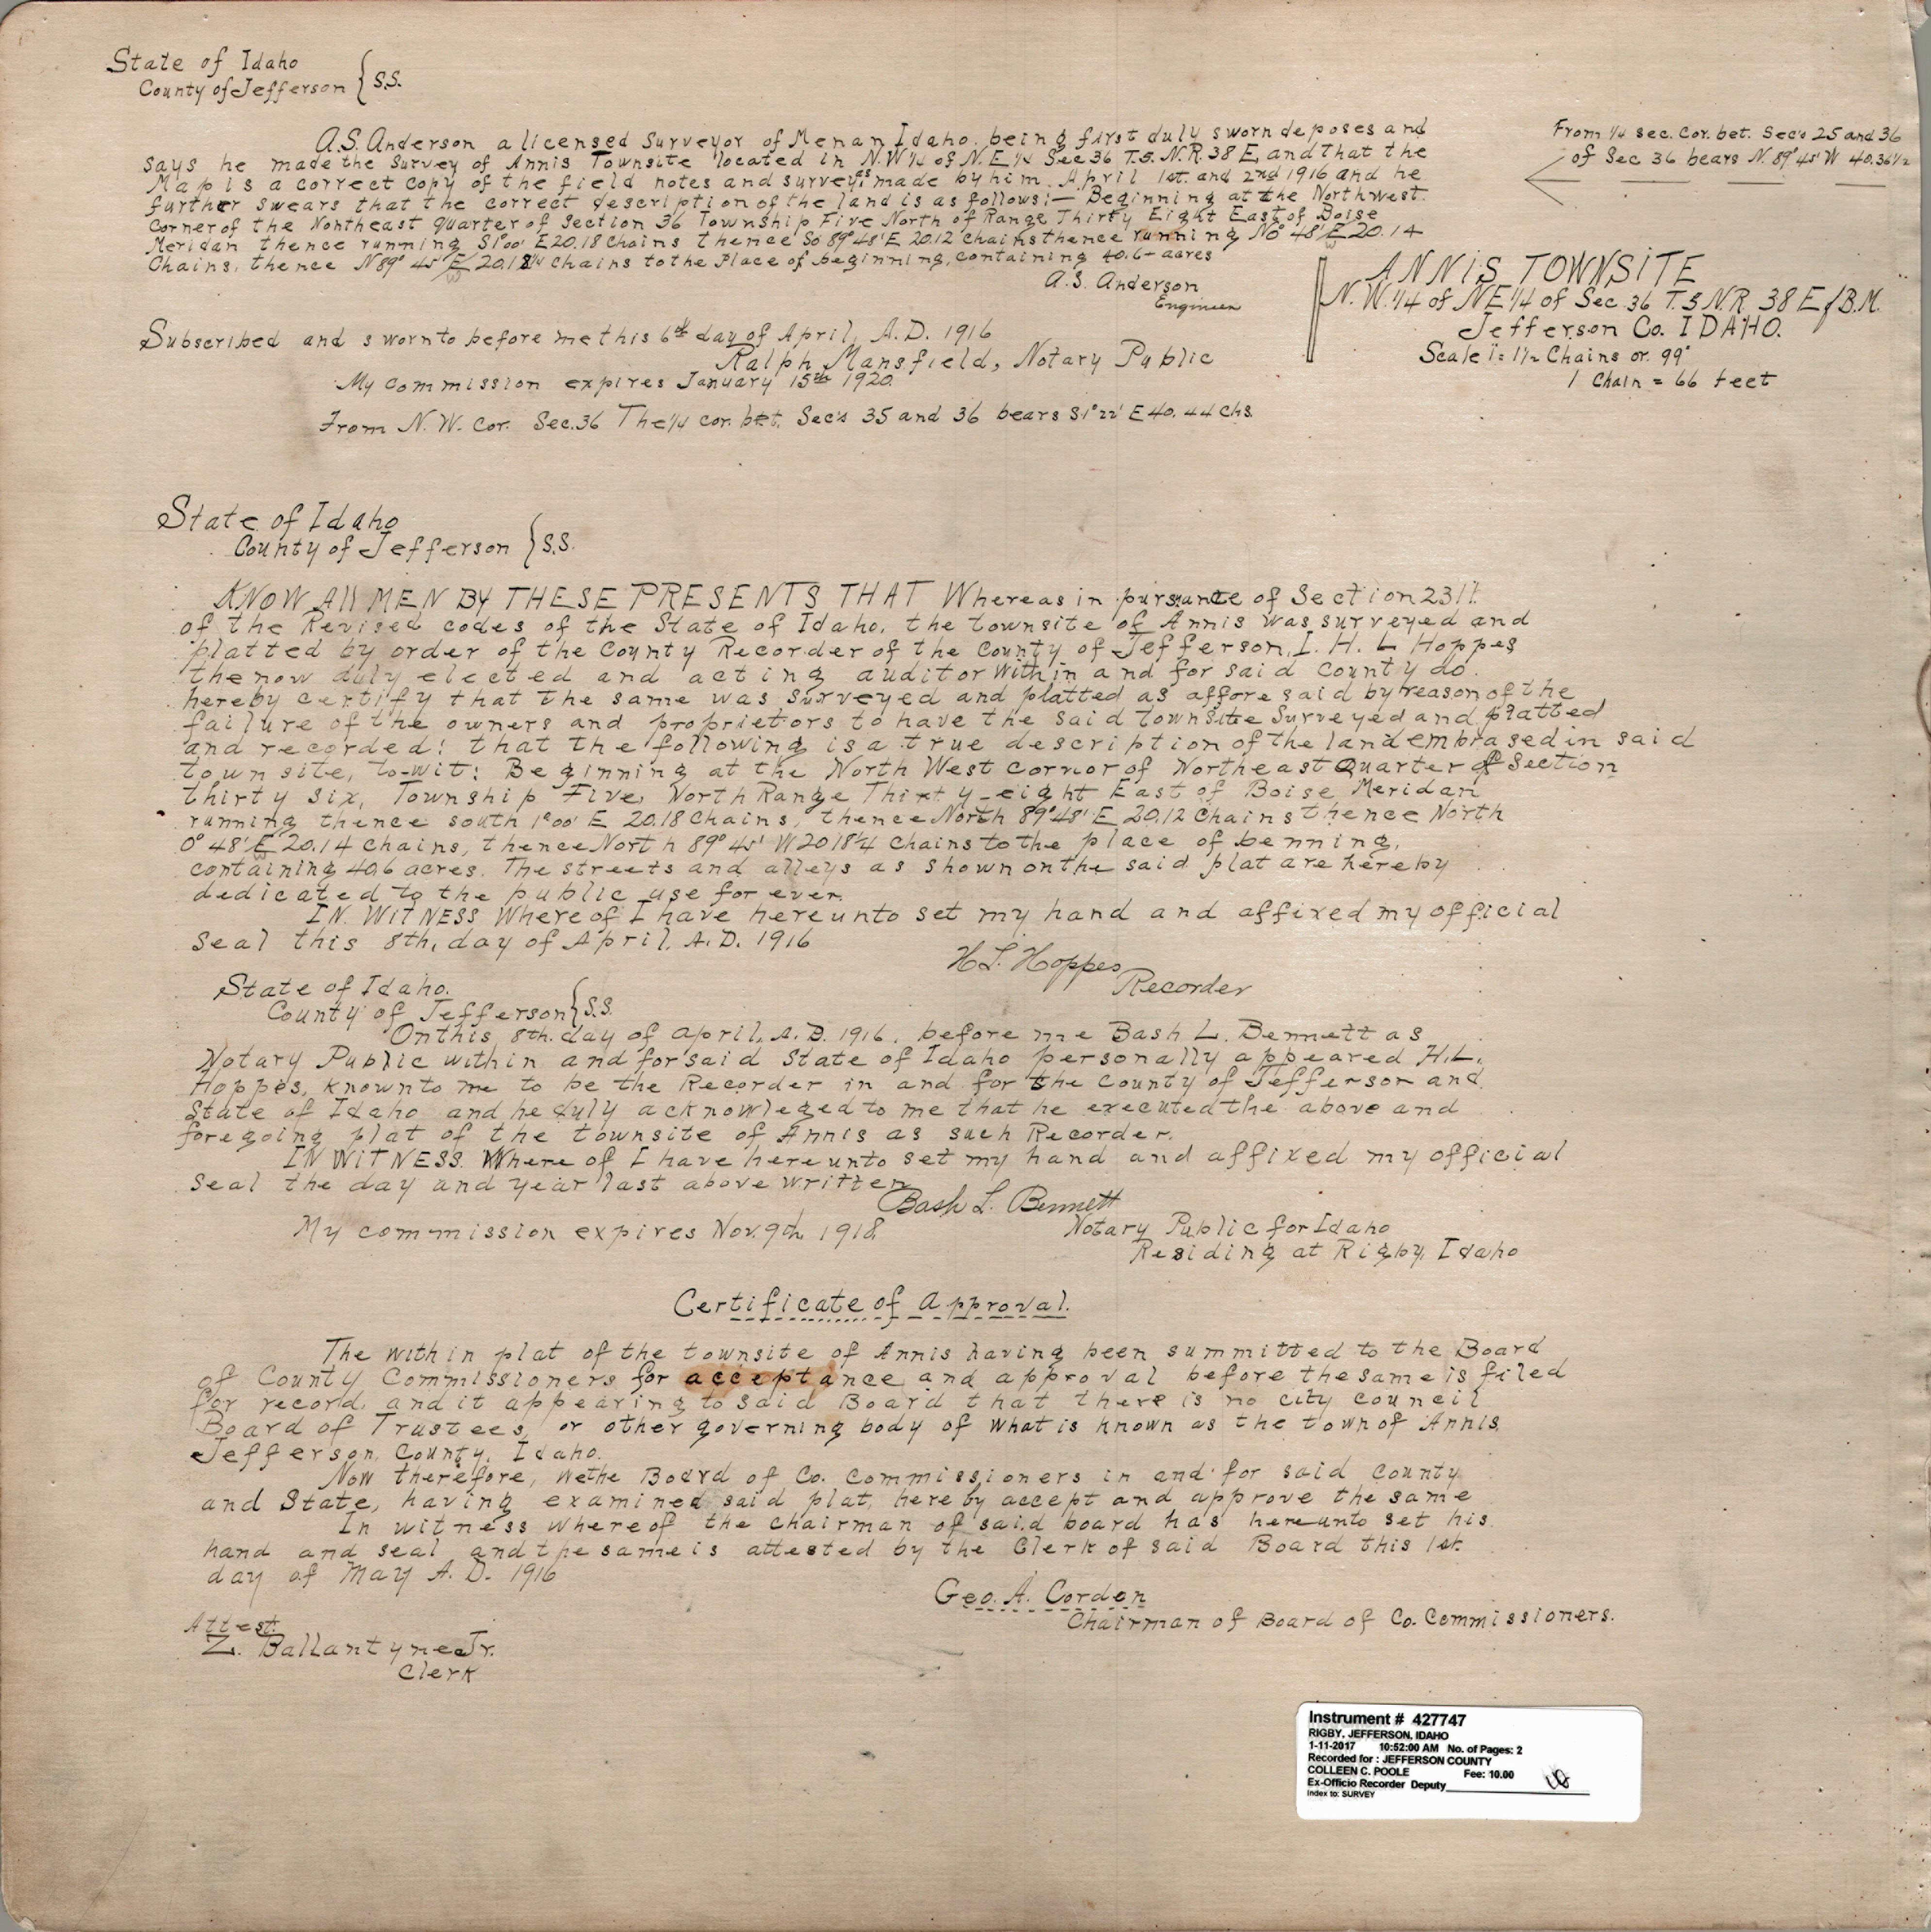 State of Idaho
County of Jefferson { S.S.
A.S. Anderson a licensed Surveyor of Menan Idaho. being first duly sworn deposes and
says he made the Survey of Annis Townsite located in N.W¼ of N.E¼ Sec 36 T.5.N.R.38 E, and that the
Map is a correct copy of the field notes and surveys as made by him April 1st. and 2nd 1916 and he
further swears that the correct description of the land is as follows:— Beginning at the Northwest.
Corner of the Northeast quarter of Section 36 Township Five North of Range Thirty Eight East of Boise
Meridan thence running S1°00' E 20.18 Chains thence So 89°48' E 20.12 Chains thence running N0° 48' E 20.14
Chains, thence N89° 45' E 20.18¼ Chains to the Place of beginning, containing 40.6- acres
A.S. Anderson
Engineer
From ¼ sec. Cor. bet. Sec's 25 and 36
of Sec 36 bears N. 89°45' W 40.36½
ANNIS TOWNSITE
N.W.¼ of NE¼ of Sec. 36 T.5 N.R. 38 E of B.M.
Jefferson Co. IDAHO.
Scale 1"= 1½ Chains or. 99'
1 Chain = 66 feet
Subscribed and sworn to before me this 6th day of April, A.D. 1916
Ralph Mansfield, Notary Public
My Commission expires January 15th 1920.
From N.W. Cor. Sec.36 The ¼ cor. bet. Sec's 35 and 36 bears S1°22' E 40.44 Chs.
State of Idaho
County of Jefferson } S.S.
KNOW All MEN BY THESE PRESENTS THAT Whereas in pursuance of Section 2311.
of the Revised codes of the State of Idaho, the townsite of Annis was surveyed and
platted by order of the County Recorder of the County of Jefferson, I. H. L Hoppes
the now duly elected and acting auditor within and for said county do.
hereby certify that the same was surveyed and platted as affore said by reason of the
failure of the owners and proprietors to have the said townsite Surveyed and platted
and recorded: that the following is a true description of the land embrased in said
town site, to-wit: Beginning at the North West cornor of Northeast Quarter of Section
thirty six, Township Five, North Range Thirty-eight East of Boise Meridan
running thence south 1°00' E 20.18 Chains, thence North 89°48' E 20.12 Chains thence North
0° 48' E 20.14 Chains, thence North 89° 45' W 20 18¼ Chains to the place of benning,
containing 40.6 acres. The streets and alleys as shown on the said plat are hereby
dedicated to the public use for ever.
IN. WITNESS Where of I have here unto set my hand and affixed my official
Seal this 8th, day of April, A.D. 1916
H.L. Hoppes
Recorder
State of Idaho.
County of Jefferson } S.S.
On this 8th. day of April, A.D. 1916, before me Bash L. Bennett as
Notary Public within and for said State of Idaho personally appeared H.L.
Hoppes, known to me to be the Recorder in and for the County of Jefferson and
State of Idaho and he duly acknowleged to me that he executed the above and
foregoing plat of the townsite of Annis as such Recorder.
IN WITNESS. Where of I have here unto set my hand and affixed my official
Seal the day and year last above written
Bash L. Bennett
My commission expires Nov. 9th, 1918
Notary Public for Idaho
Residing at Rigby, Idaho
Certificate of Approval.
The within plat of the townsite of Annis having been summitted to the Board
of County Commissioners for acceptance and approval before the same is filed
for record, and it appearing to said Board that there is no city council
Board of Trustees, or other governing body of what is known as the town of Annis,
Jefferson, County, Idaho.
Now therefore, we the Board of Co. Commissioners in and for said County
and State, having examined said plat, here by accept and approve the same
In witness whereof the chairman of said board has hereunto set his
hand and seal and the same is attested by the Clerk of said Board this 1st.
day of May A.D. 1916
Geo. A. Cordon
Chairman of Board of Co. Commissioners.
Attest:
Z. Ballantyne Jr.
Clerk
Instrument # 427747
RIGBY, JEFFERSON, IDAHO
1-11-2017 10:52:00 AM No. of Pages: 2
Recorded for : JEFFERSON COUNTY
COLLEEN C. POOLE Fee: 10.00
Ex-Officio Recorder Deputy
Index to: SURVEY